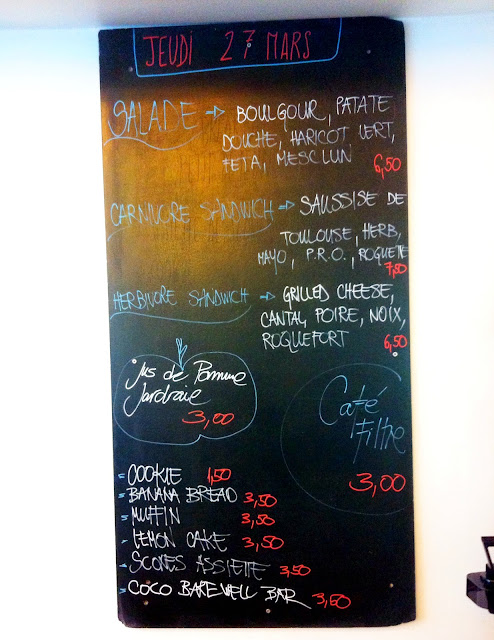 JEUDI 27 MARS
SALADE → BOULGOUR, PATATE
DOUCHE, HARICOT VERT,
FETA, MESCLUN 6,50
CARNIVORE SANDWICH → SAUSSISE DE
TOULOUSE, HERB,
MAYO, P.R.O., ROQUETTE
7,50
HERBIVORE SANDWICH → GRILLED CHEESE,
CANTAL, POIRE, NOIX,
ROQUEFORT 6,50
Jus de Pomme
Jardraie
3,00
Café
Filtre
3,00
- COOKIE 1,50
- BANANA BREAD 3,50
- MUFFIN 3,50
- LEMON CAKE 3,50
- SCONES ASSIETTE 3,50
- COCO BAKEWELL BAR 3,60